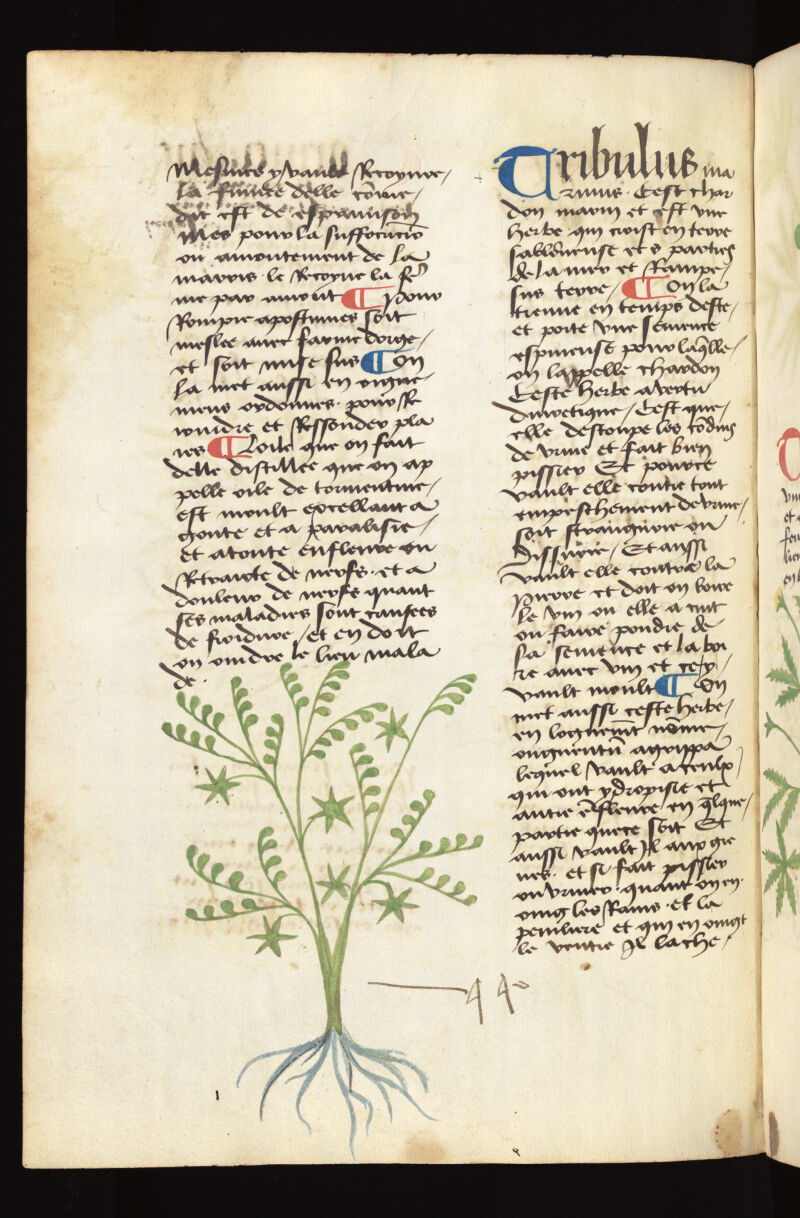 mesmes y vault Recoyure
la fumee delle cõme
dit est de espanuison
Mes pour la suffocaciõ
ou amontement de la
marris le Recoyue la fẽ
me par amont ¶ Pour
Rompre apostumes soit
meslee avec farine dorge
et soit mise sus ¶ On
la met aussi en oigne
mens ordonnes pour Re
ioindre et Ressouder pla
ies ¶ Loile que on fait
delle distillee que on ap
pelle oile de tormentine
est moult excellant a
goute et a paralisie
et a toute enfleure ou
Retraicte de nerfs et a
douleur de nerfs quant
ses maladies sont causees
de froidure et en doit
on oindre le lieu mala
de
Tribulus ma
rinus Cest char
don marin et est vne
herbe qui croist en terre
sablonneuse et es parties
de la mer et Rampe
sus terre ¶ On la
treuue en temps deste
et porte vne semence
espineuse pour laq̃lle
on lappelle chardon
Ceste herbe a vertu
diuretique Cest que
elle destoupe les cõduis
de vrine et fait bien
pissier Et pource
vault elle contre tout
empeschement de vrine
soit stranguirie ou
dissurie Et aussi
vault elle contre la
pierre et doit on boire
le vin ou elle a cuit
ou faire pondre de
sa semence et la boi
re avec vin et ce y
vault moult ¶ On
met aussi ceste herbe
en loguemẽt nõme
onguentũ agrippa
lequel vault a ceulx
qui ont ydropisie et
autre ẽfleure en q̃lque
partie que ce soit Et
aussi vault Il aux gre
ues et si fait pissier
ou vriner quant on en
oing les Rains et la
peniliere et qui en oingt
le ventre Il lache
44